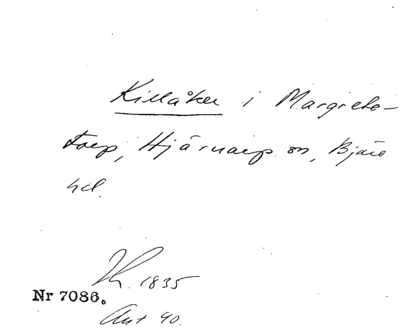 Killåker i Margrete-
torp, Hjärnarp sn, Bjäre
hd.
1835
Nr 7086.
Ant 40.